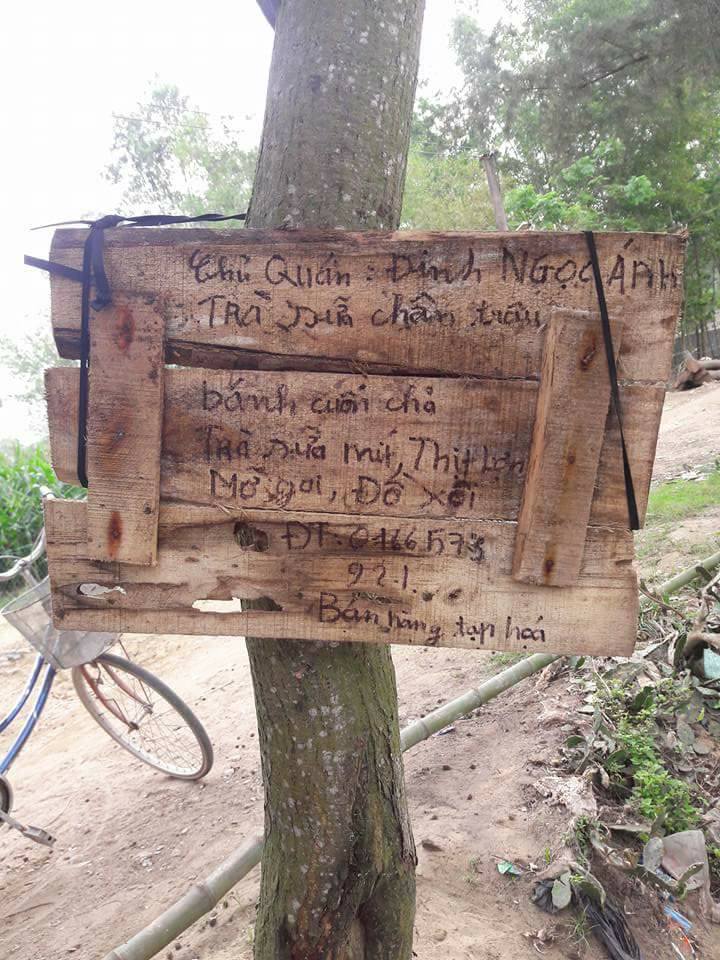 Chủ Quán : Đinh NGỌC ÁNH
TRà sữa chân trâu
bánh cuốn chả
Trà sữa mít, Thịt Lợn
Mớ gai, Đồ xôi
ĐT: 0166 573
921...
Bán hàng tạp hoá